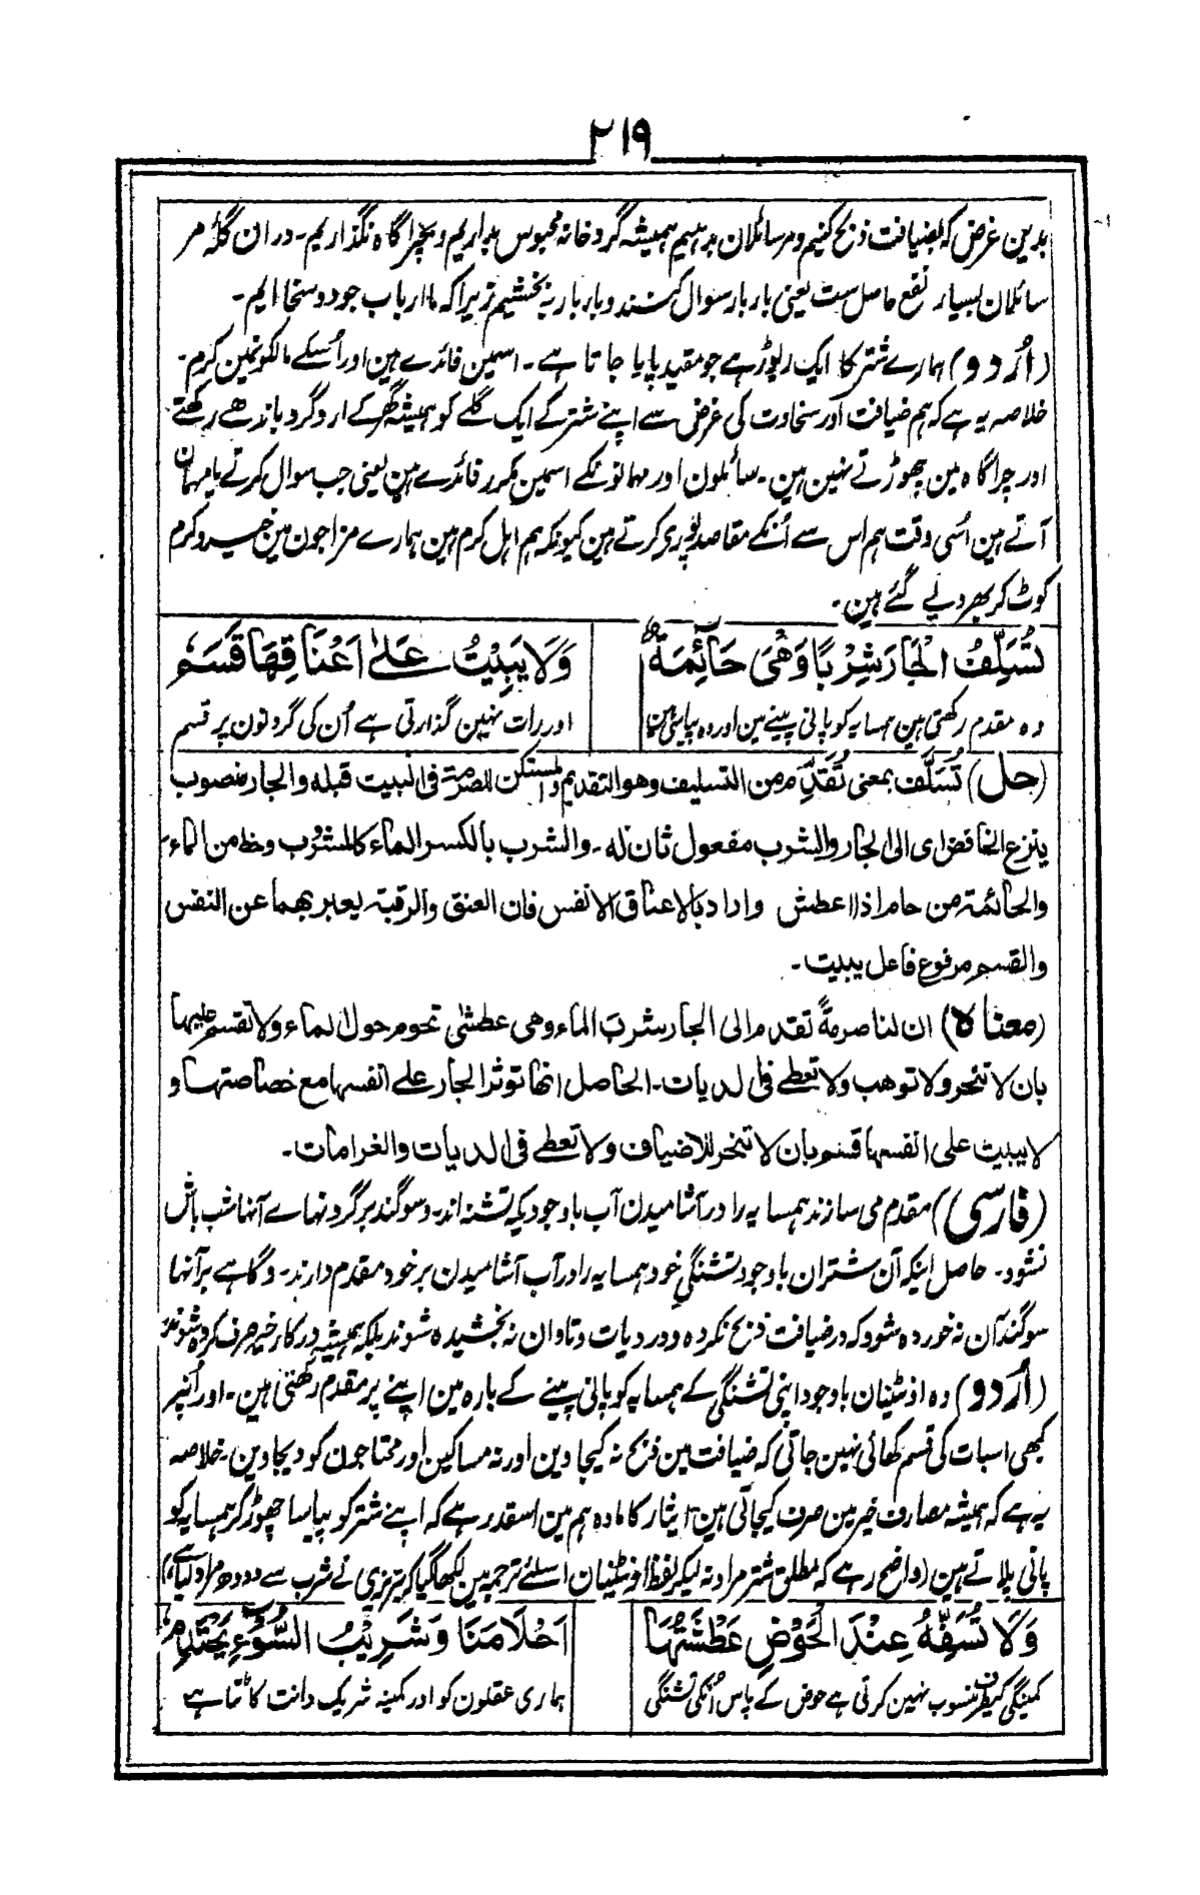 ۲۱۹
بدین غرض کہ بضیافت ذبح کنیم و مر سائلان بدہیم ہمیشہ گرد خانہ محبوس بداریم و بچراگاہ نگذاریم۔ دران گلّہ مر
سائلان بسیار نفع حاصل ست یعنی بار بار سوال کنند و بار بار بہ بخشیم زیراکہ ما ارباب جود و سخا ایم۔
(اُردو) ہمارے شتر کا ایک ریوڑ ہے جو مقید پایا جاتا ہے۔ اسمین فائدے ہین اور اُسکے مالکونمین کرم۔
خلاصہ یہ ہے کہ ہم ضیافت اور سخاوت کی غرض سے اپنے شتر کے ایک گلے کو ہمیشہ گھر کے اردگرد باندھے رکھتے
اور چراگاہ مین چھوڑتے نہین ہین۔ سائلون اور مہمانونکے اسمین مکرر فائدے ہین یعنی جب سوال کرتے یا مہمان
آتے ہین اُسی وقت ہم اس سے اُنکے مقاصد پوری کرتے ہین کیونکہ ہم اہل کرم ہین ہمارے مزاجون مین خیر و کرم
کوٹ کر بھر دیے گئے ہین۔
تُسَلِّفُ الْجَارَ شِرْبًا وَهْىَ حَائِمَةٌ
وَلَا يَبِيْتُ عَلىٰ اَعْنَاقِهَا قَسَمُ
وہ مقدم رکھتی ہین ہمسایہ کو پانی پینے مین اور وہ پیاسی
اور رات نہین گذارتی ہے اُن کی گردنون پر قسم
(حل) تُسَلِّف بمعنی تُقَدِّم من التسلیف وھو التقدیم والمستکن للصرمۃ فی البیت قبلہ والجار منصوب
بنزع الخافض ای الی الجار والشرب مفعول ثان لہ۔ والشرب بالکسر الماء کالمشرب وحظ من الماء۔
والحائمۃ من حام اذا عطش واراد بالاعناق الانفس فان العنق والرقبۃ یعبر بھما عن النفس
والقسم مرفوع فاعل یبیت۔
(معناہ) ان لنا صرمۃً تقدم الی الجار شربَ الماء وھی عطشیٰ تحوم حول الماء ولا تقسم علیھا
بان لا تنحر ولا توھب ولا تعطے فی الدیات۔ الحاصل انھا توثر الجار علے انفسھا مع خصاصتھا و
لا یبیت علی انفسھا قسم بان لا تنحر للاضیاف ولا تعطے فی الدیات والغرامات۔
(فارسی) مقدم می سازند ہمسایہ را در آشامیدن آب باوجودیکہ تشنہ اند۔ و سوگند بر گردنہاے آنہا شب باش
نشود۔ حاصل اینکہ آن شتران باوجود تشنگیِ خود ہمسایہ را در آب آشامیدن بر خود مقدم دارند۔ و گاہے بر آنہا
سوگند آن نہ خوردہ شود کہ در ضیافت ذبح نکردہ و در دیات و تاوان نہ بخشیدہ شوند بلکہ ہمیشہ در کار خیر صرف کردہ شوند
(اُردو) وہ اونٹنیان باوجود اپنی تشنگی کے ہمسایہ کو پانی پینے کے بارہ مین اپنے پر مقدم رکھتی ہین۔ اور اُنپر
کبھی اسبات کی قسم کھائی نہین جاتی کہ ضیافت مین ذبح نہ کیجاوین اور نہ مساکین اور محتاجون کو دیجاوین۔ خلاصہ
یہ ہے کہ ہمیشہ مصارف خیر مین صرف کیجاتی ہین ایثار کا مادہ ہم مین اسقدر ہے کہ اپنے شتر کو پیاسا چھوڑ کر ہمسایہ کو
پانی پلاتے ہین (واضح رہے کہ مطلق شتر مراد نہ لیکر لفظ اونٹنیان اسلئے ترجمہ مین لکھا گیا کہ تبریزی نے شرب سے دودھ مراد لیا ہے)
وَلَا تُسَفِّهُ عِنْدَ الْحَوْضِ عَطْشَتُهَا
اَحْلَامَنَا وَشَرِيْبُ السُّوْءِ يَحْتَدِمُ
کمینگی کیطرف منسوب نہین کرتی ہے حوض کے پاس اُنکی تشنگی
ہماری عقلون کو اور کمینہ شریک دانت کاٹتا ہے